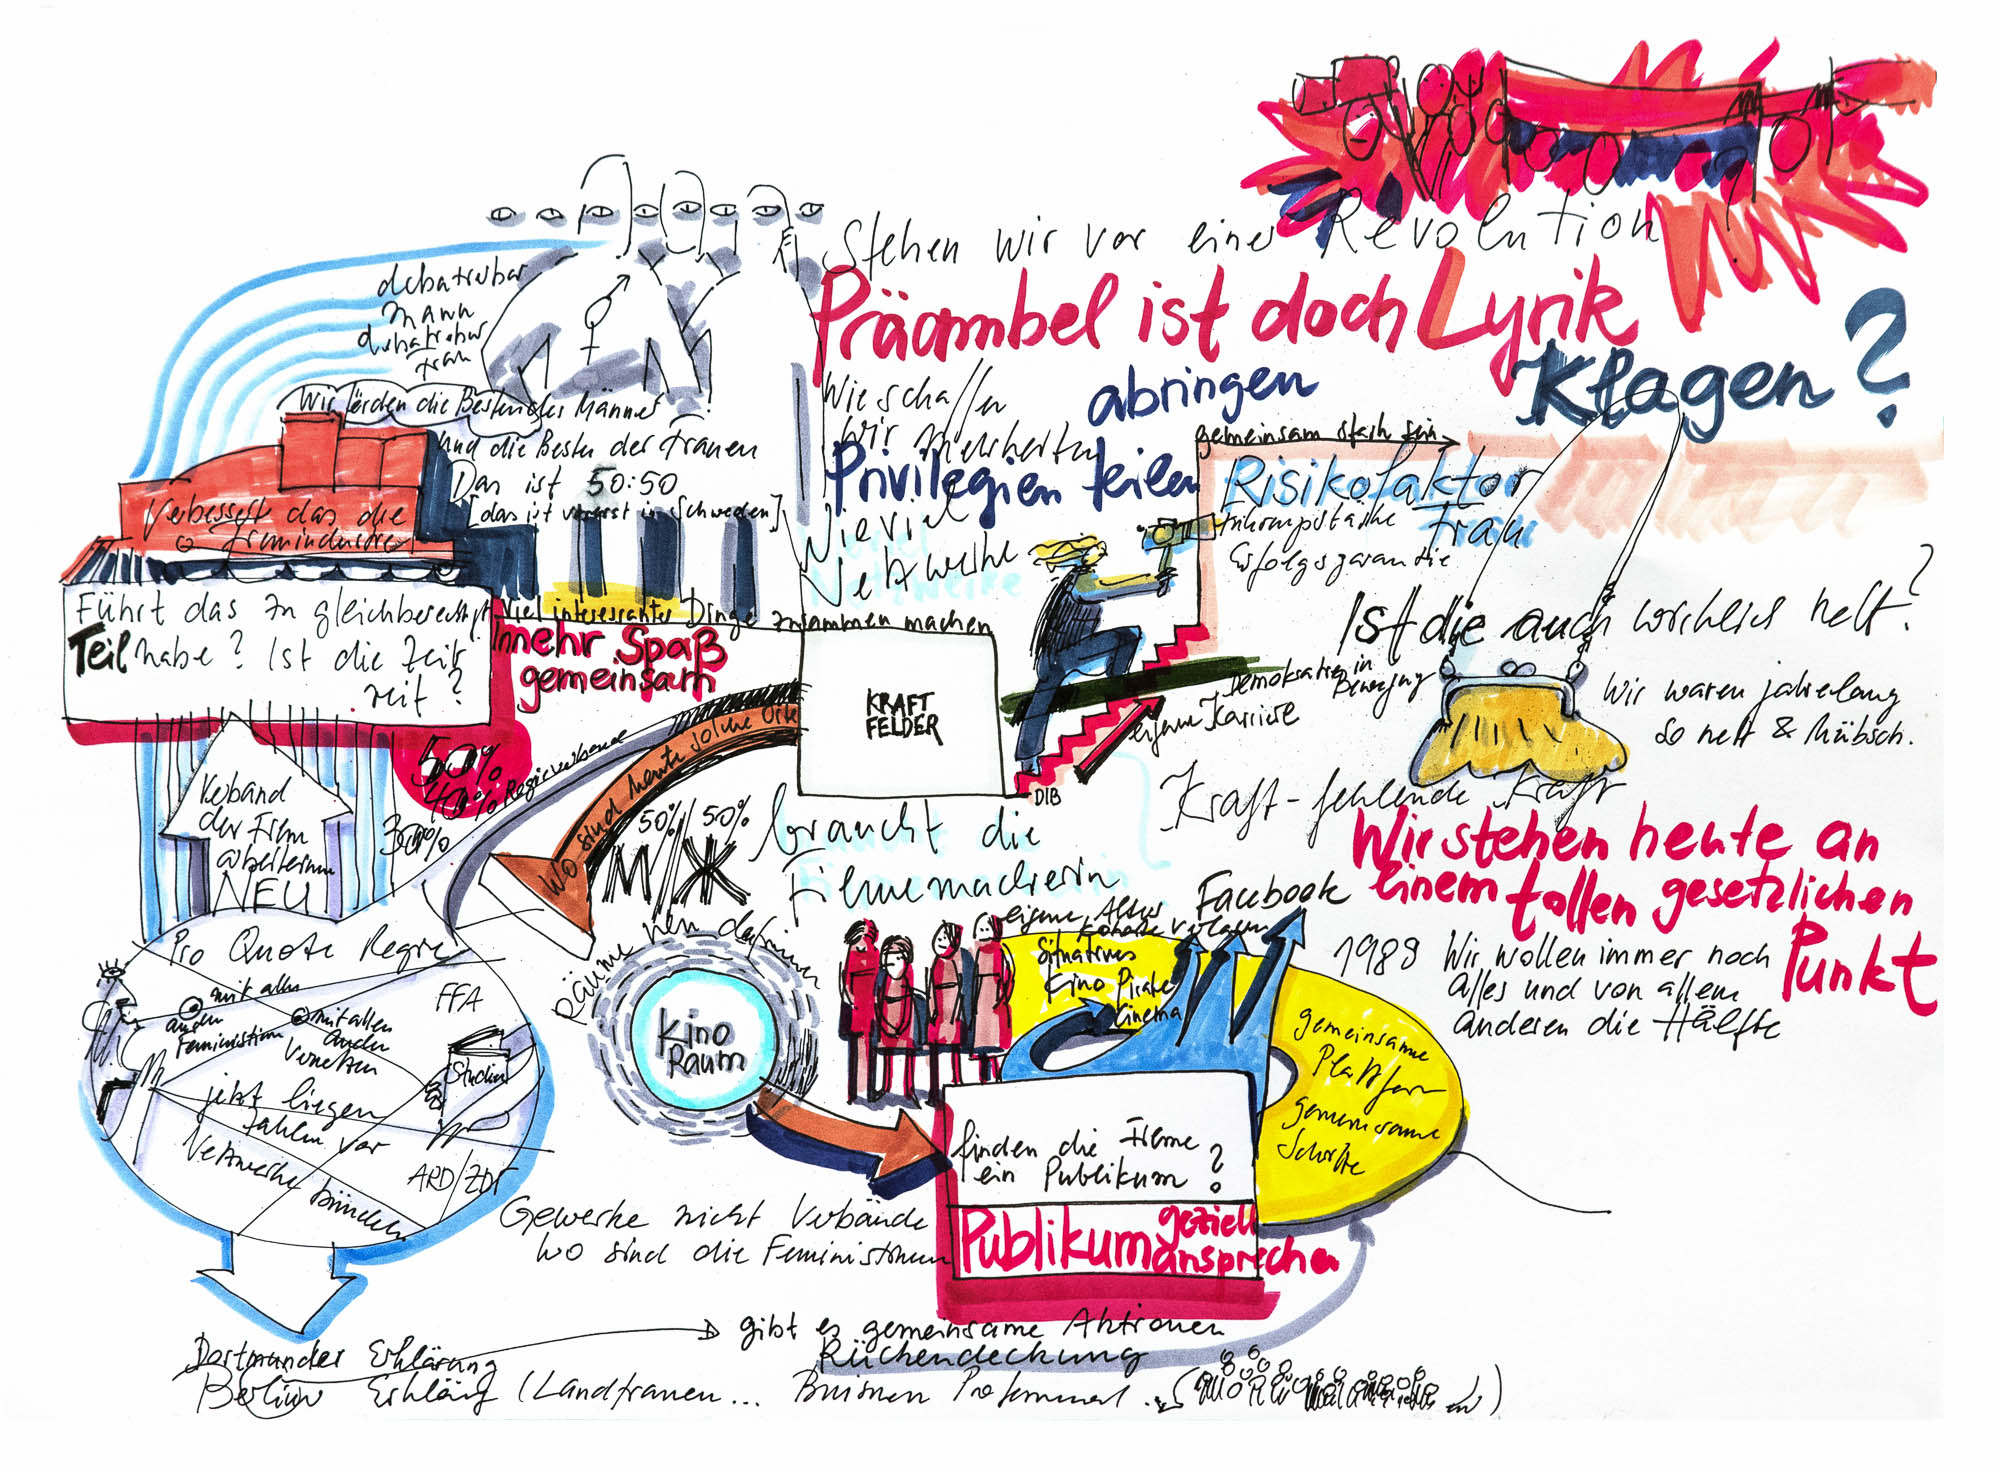 Stehen wir vor einer Revolution
Präambel ist doch Lyrik
Klagen?
debattierbar
Mann
Frau
Wir förden die Besten der Männer
und die Besten der Frauen
Das ist 50:50
[das ist in Schweden]
Wie schaffen
wir Mehrheiten
abringen
Privilegien teilen
gemeinsam stark sein
Risikofaktor
Frau
Erfolgsgarantie
Wieviel
Netzwerke
Verbessert das die
Filmindustrie
Führt das zu gleichberechtigt
Teilhabe? Ist die Zeit
reif?
Viel interessanter Dinge zusammen machen
mehr Spaß
gemeinsam
KRAFT
FELDER
Demokratie in
Bewegung
eigene Karriere
DIB
Ist die auch wirklich nett?
Wir waren jahrelang
so nett & hübsch.
Kraft-fehlende Kraft
Wir stehen heute an
einem tollen gesetzlichen
Punkt
1989 Wir wollen immer noch
Alles und von allem
anderen die Hälfte
50%
40%
30%
Regieverbände
Wo sind heute solche Orte
50% / 50%
M//Ж
braucht die
Filmemacherin
Verband
der Film
arbeiterinnen
NEU
Pro Quote Regie
mit allen
anderen
Feministinnen
mit allen
anderen
vernetzen
FFA
Studien
jetzt liegen
Zahlen vor
Netzwerke bündeln
ARD/ZDF
Räume neu definieren
Kino
Raum
Facebook
eigene
Situatives
Kino Pirate
Cinema
gemeinsame
Plattform
gemeinsame
Schritte
finden die Filme
ein Publikum?
Publikum gezielt
ansprechen
Gewerke nicht Verbände
Wo sind die Feministinnen
Dortmunder Erklärung
gibt es gemeinsame Aktionen
Rückendeckung
Berliner Erkläng (Landfrauen... Business Professional